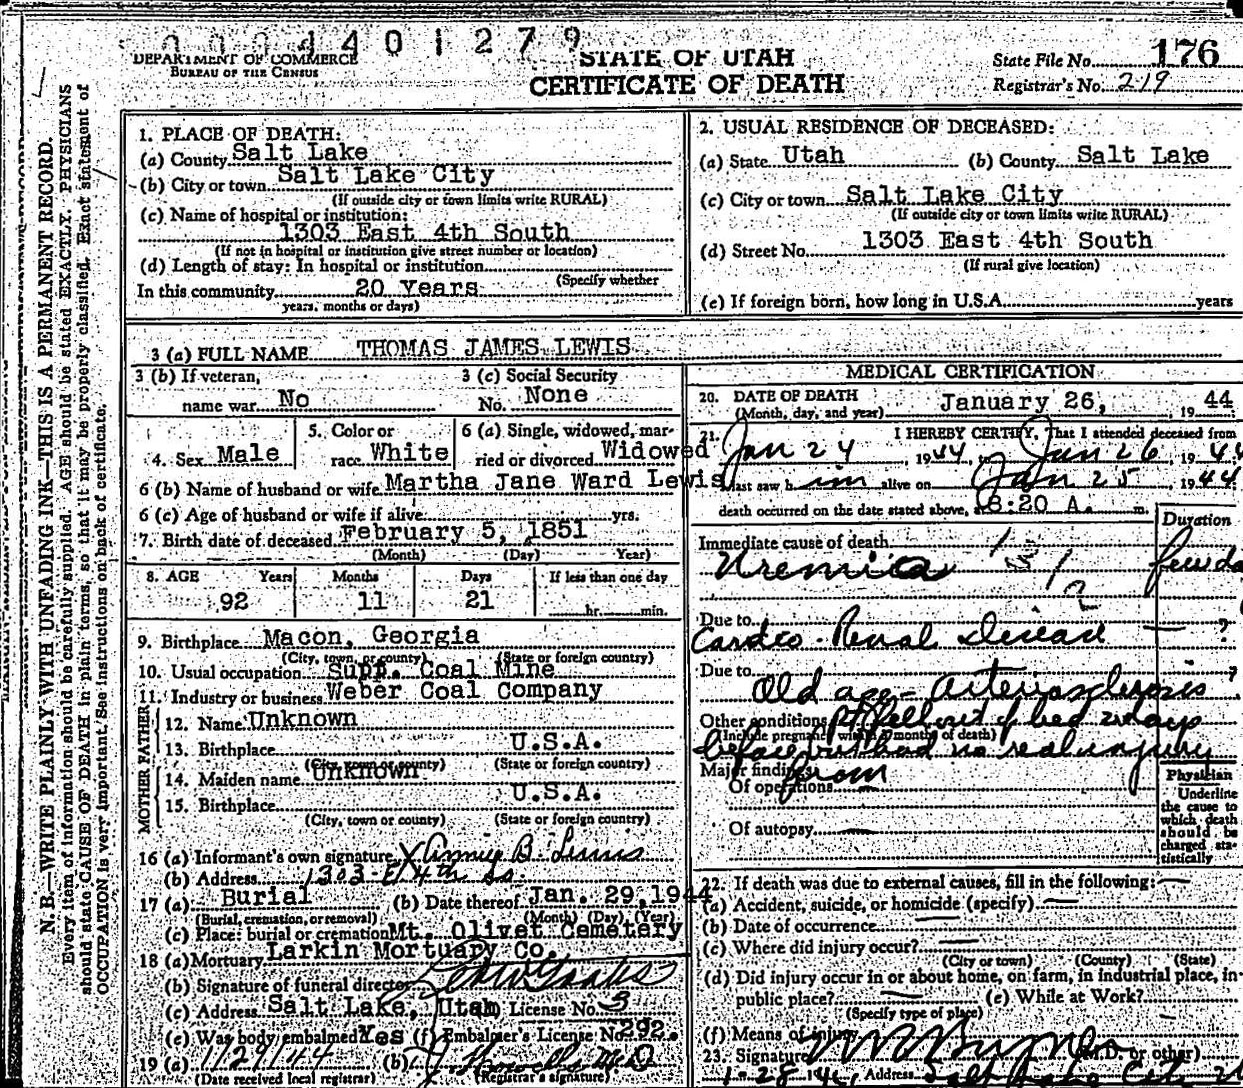 4 0 1 2 7 9
DEPARTMENT OF COMMERCE
BUREAU OF THE CENSUS
STATE OF UTAH
CERTIFICATE OF DEATH
State File No. 176
Registrar's No. 219
N. B.—WRITE PLAINLY WITH UNFADING INK—THIS IS A PERMANENT RECORD.
Every item of information should be carefully supplied. AGE should be stated EXACTLY. PHYSICIANS
should state CAUSE OF DEATH in plain terms, so that it may be properly classified. Exact statement of
OCCUPATION is very important. See instructions on back of certificate.
1. PLACE OF DEATH:
(a) County Salt Lake
(b) City or town Salt Lake City
(If outside city or town limits write RURAL)
(c) Name of hospital or institution:
1303 East 4th South
(If not in hospital or institution give street number or location)
(d) Length of stay: In hospital or institution
(Specify whether
In this community 20 Years
years, months or days)
2. USUAL RESIDENCE OF DECEASED:
(a) State Utah (b) County Salt Lake
(c) City or town Salt Lake City
(If outside city or town limits write RURAL)
(d) Street No. 1303 East 4th South
(If rural give location)
(e) If foreign born, how long in U.S.A. years
3 (a) FULL NAME THOMAS JAMES LEWIS
3 (b) If veteran,
name war No
3 (c) Social Security
No. None
4. Sex Male
5. Color or
race White
6 (a) Single, widowed, mar-
ried or divorced Widowed
6 (b) Name of husband or wife Martha Jane Ward Lewis
6 (c) Age of husband or wife if alive yrs.
7. Birth date of deceased February 5, 1851
(Month) (Day) Year)
8. AGE Years Months Days If less than one day
92 11 21 hr. min.
9. Birthplace Macon, Georgia
(City, town, or county) (State or foreign country)
10. Usual occupation Supp. Coal Mine
11. Industry or business Weber Coal Company
FATHER
12. Name Unknown
13. Birthplace U.S.A.
(City, town or county) (State or foreign country)
MOTHER
14. Maiden name Unknown
15. Birthplace U.S.A.
(City, town or county) (State or foreign country)
16 (a) Informant's own signature X Annie B. Lewis
(b) Address 1303-E 4th So.
17 (a) Burial (b) Date thereof Jan. 29, 1944
(Burial, cremation, or removal) (Month) (Day), (Year)
(c) Place: burial or cremation Mt. Olivet Cemetery
18 (a) Mortuary Larkin Mortuary Co.
(b) Signature of funeral director
(c) Address Salt Lake, Utah (d) License No. 3
(e) Was body embalmed Yes (f) Embalmer's License No. 292.
19 (a) 1/29/44 (b) M.D.
(Date received local registrar) (Registrar's signature)
MEDICAL CERTIFICATION
20. DATE OF DEATH
(Month, day, and year) January 26, 19 44
21. I HEREBY CERTIFY, That I attended deceased from
Jan 24, 1944, to Jan 26, 1944
I last saw him alive on Jan 25 1944
death occurred on the date stated above, at 8:20 A. m.
Duration
Immediate cause of death
Uremica few da
Due to
Cardeo-Renal Disease — ?
Due to
Old age - Arteriosclerosis ?
Other conditions Pt fell out of bed 2 days
(Include pregnancy within 3 months of death)
before but had no real injury
Major findings: from
Of operations
Of autopsy
Physician
Underline
the cause to
which death
should be
charged sta-
tistically
22. If death was due to external causes, fill in the following:
(a) Accident, suicide, or homicide (specify)
(b) Date of occurrence
(c) Where did injury occur?
(City or town) (County) (State)
(d) Did injury occur in or about home, on farm, in industrial place, in-
public place? (e) While at Work?
(Specify type of place)
(f) Means of injury
23. Signature (M.D. or other)
1-28 Address Salt Lake City